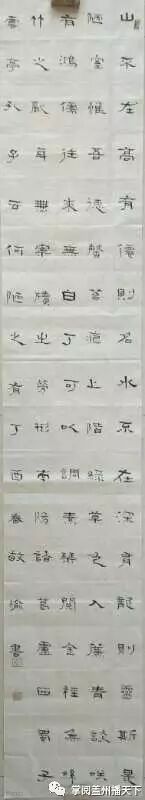 山不在高有僊則名水不在深有龍則靈斯是
陋室惟吾德馨苔痕上階緑草色入簾青談咲
有鴻儒往來無白丁可以調素琴閱金經無絲
竹之亂耳無案牘之勞形南陽諸葛廬西蜀子
雲亭孔子云何陋之有丁酉春書
掌阅盖州播天下